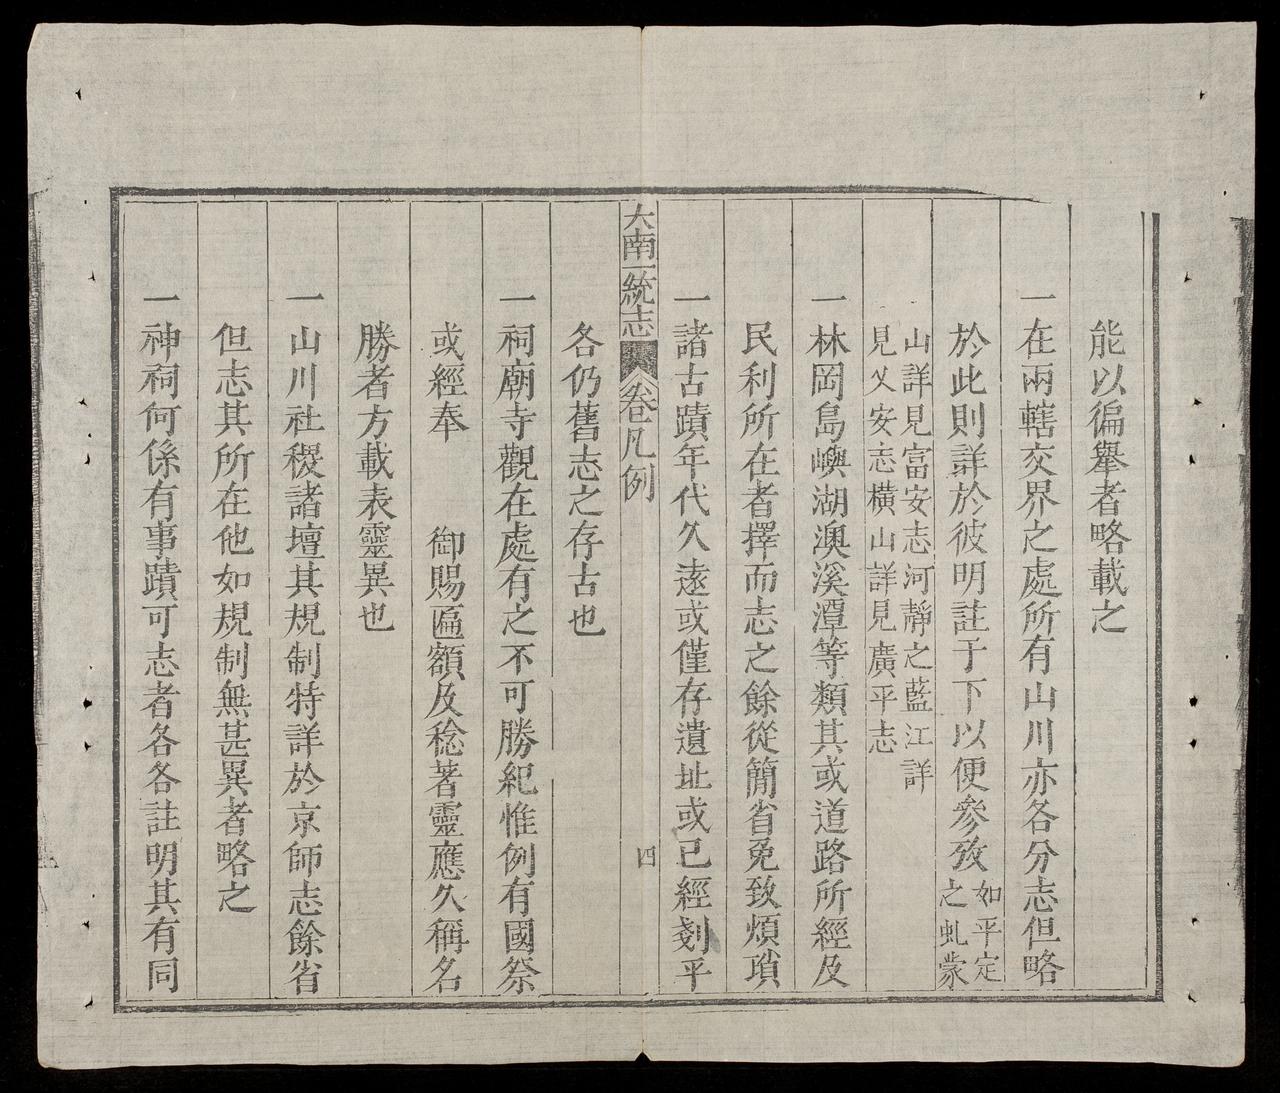 能以徧擧者略載之
一在兩轄交界之處所有山川亦各分志但略
於此則詳於彼明註于下以便參攷如平定之虬蒙
山詳見富安志河靜之藍江詳
見乂安志橫山詳見廣平志
一林岡島嶼湖澳溪潭等類其或道路所經及
民利所在者擇而志之餘從簡省免致煩瑣
一諸古蹟年代久遠或僅存遺址或已經剗平
各仍舊志之存古也
大南一統志 卷凡例 四
一祠廟寺觀在處有之不可勝紀惟例有國祭
或經奉 御賜匾額及稔著靈應久稱名
勝者方載表靈異也
一山川社稷諸壇其規制特詳於京師志餘省
但志其所在他如規制無甚異者略之
一神祠何係有事蹟可志者各各註明其有同